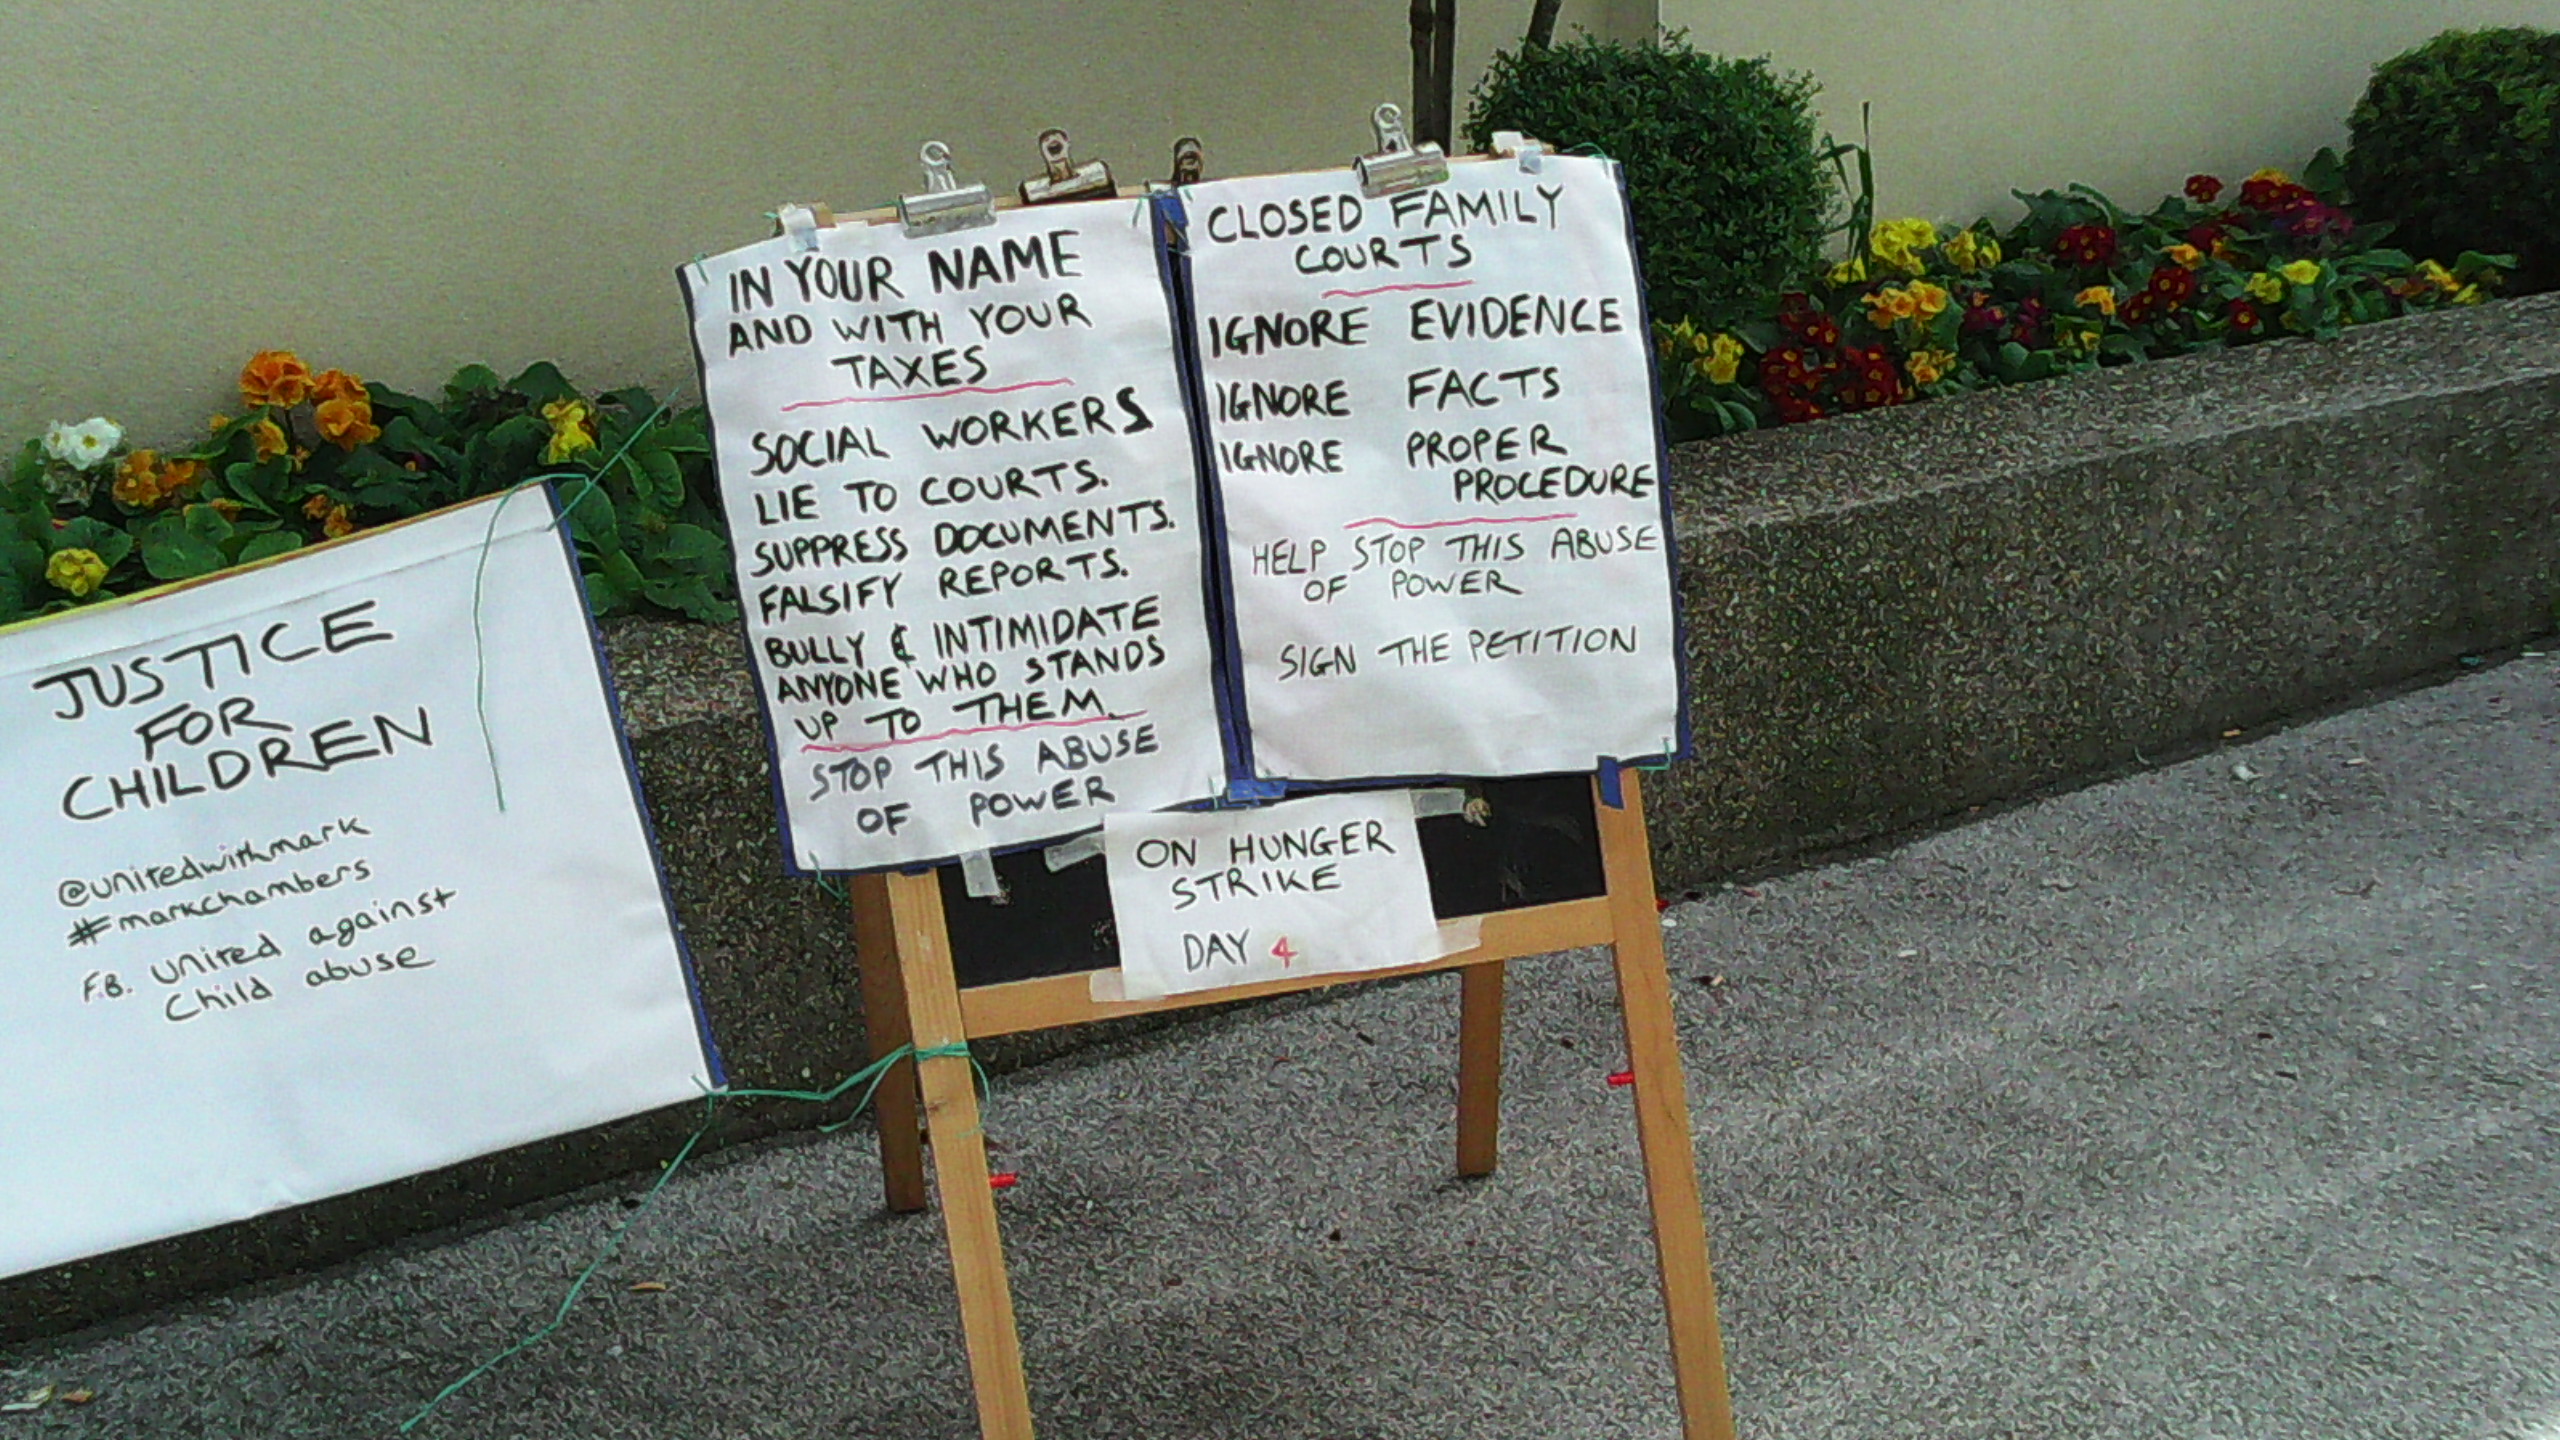 JUSTICE
FOR
CHILDREN
@unitedwithmark
#markchambers
F.B. United against
Child abuse
IN YOUR NAME
AND WITH YOUR
TAXES
SOCIAL WORKERS
LIE TO COURTS.
SUPPRESS DOCUMENTS.
FALSIFY REPORTS.
BULLY & INTIMIDATE
ANYONE WHO STANDS
UP TO THEM.
STOP THIS ABUSE
OF POWER
CLOSED FAMILY
COURTS
IGNORE EVIDENCE
IGNORE FACTS
IGNORE PROPER
PROCEDURE
HELP STOP THIS ABUSE
OF POWER
SIGN THE PETITION
ON HUNGER
STRIKE
DAY 4